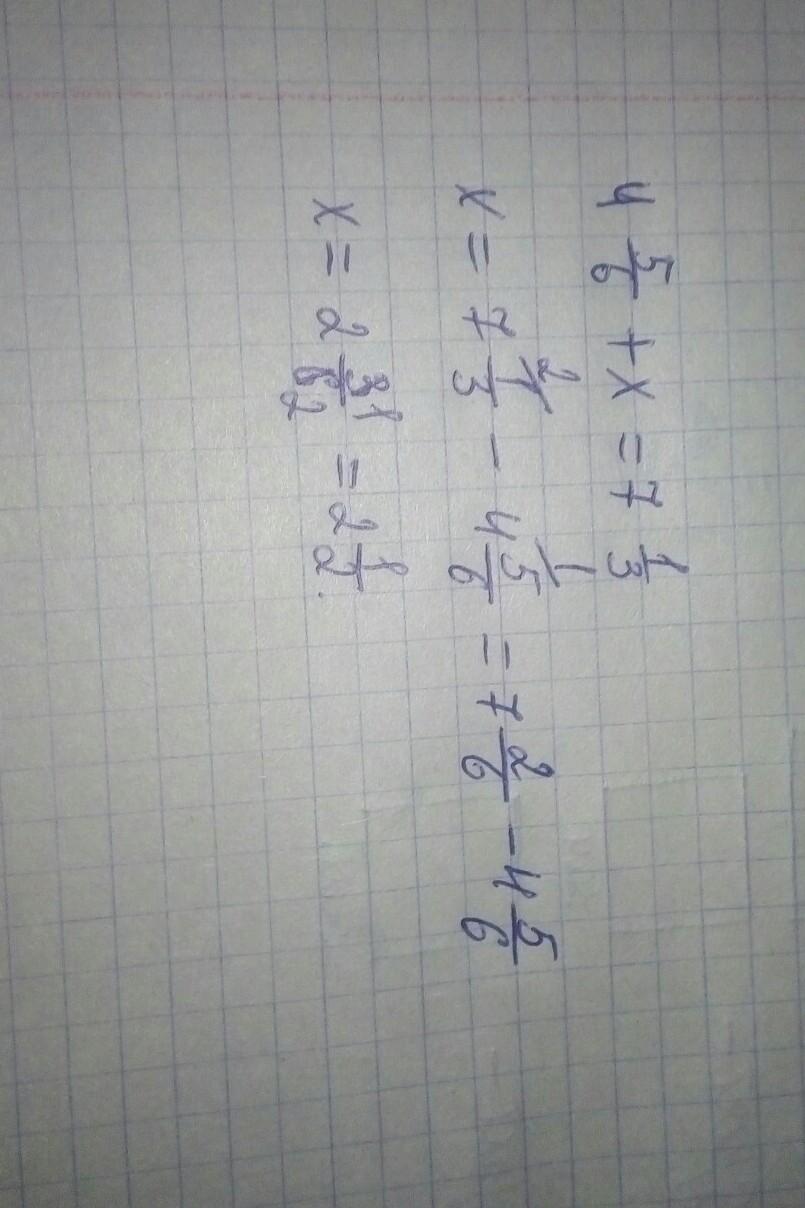 4 5/6 + x = 7 1/3
x = 7 1/3 (2 - 4 5/6 (1 = 7 2/6 - 4 5/6
x = 2 3/6 1/2 = 2 1/2.